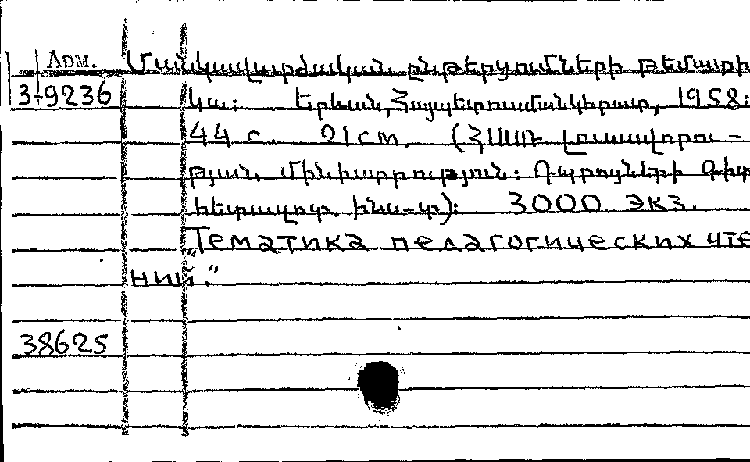 Арм. Մանկավարժական ընթերցումների թեմատի
3-9236 կա: Երևան, Հայպետուսմանկհրատ, 1958:
44 с. 21 cm. (ՀՍՍՌ Լուսավորու-
թյան մինիստրություն: Դպրոցների Գիտ
հետազոտ. ինս-տ): 3000 экз.
"Тематика педагогических чте
ний."
38625